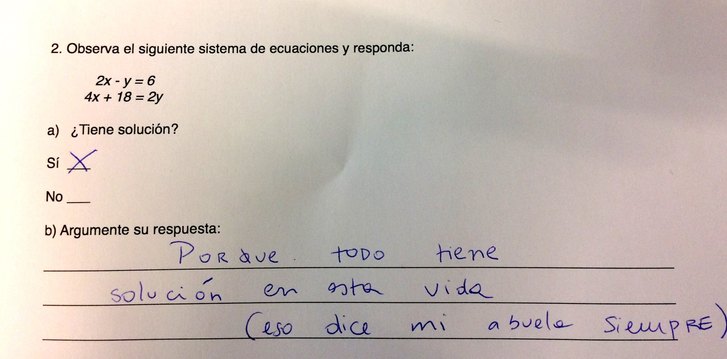 2. Observa el siguiente sistema de ecuaciones y responda:
2x - y = 6
4x + 18 = 2y
a) ¿Tiene solución?
Sí X
No ___
b) Argumente su respuesta:
PORQUE TODO tiene
solución en esta vida
(eso dice mi abuela SIEMPRE)